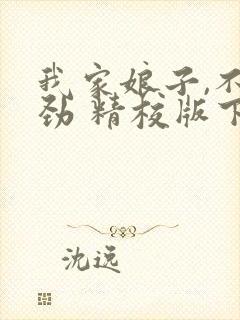 我家娘子,不
劲 精校版下
沈远